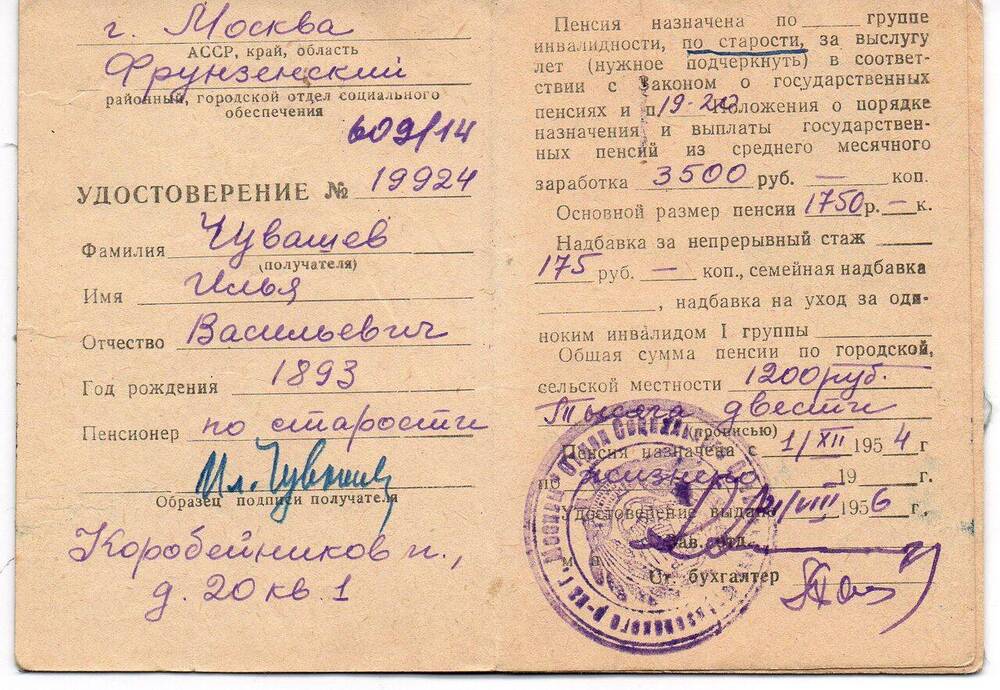 г. Москва
АССР, край, область
Фрунзенский
районный, городской отдел социального
обеспечения
609/14
УДОСТОВЕРЕНИЕ № 19924
Фамилия Чувашев
(получателя)
Имя Илья
Отчество Васильевич
Год рождения 1893
Пенсионер по старости
Ил. Чувашев
Образец подписи получателя
Коробейников п.,
д. 20 кв. 1
Пенсия назначена по ____ группе
инвалидности, по старости, за выслугу
лет (нужное подчеркнуть) в соответ-
ствии с Законом о государственных
пенсиях и п. 19-20 Положения о порядке
назначения и выплаты государствен-
ных пенсий из среднего месячного
заработка 3500 руб. — коп.
Основной размер пенсии 1750 р. — к.
Надбавка за непрерывный стаж
175 руб. — коп., семейная надбавка
____, надбавка на уход за оди-
ноким инвалидом I группы
Общая сумма пенсии по городской,
сельской местности 1200 руб.
Тысяча двести
(прописью)
Пенсия назначена с 1/XII 1954 г
по жизненно 19 г.
Удостоверение выдано 21/VIII 1956 г.
Зав. отд.
М П
Ст. бухгалтер